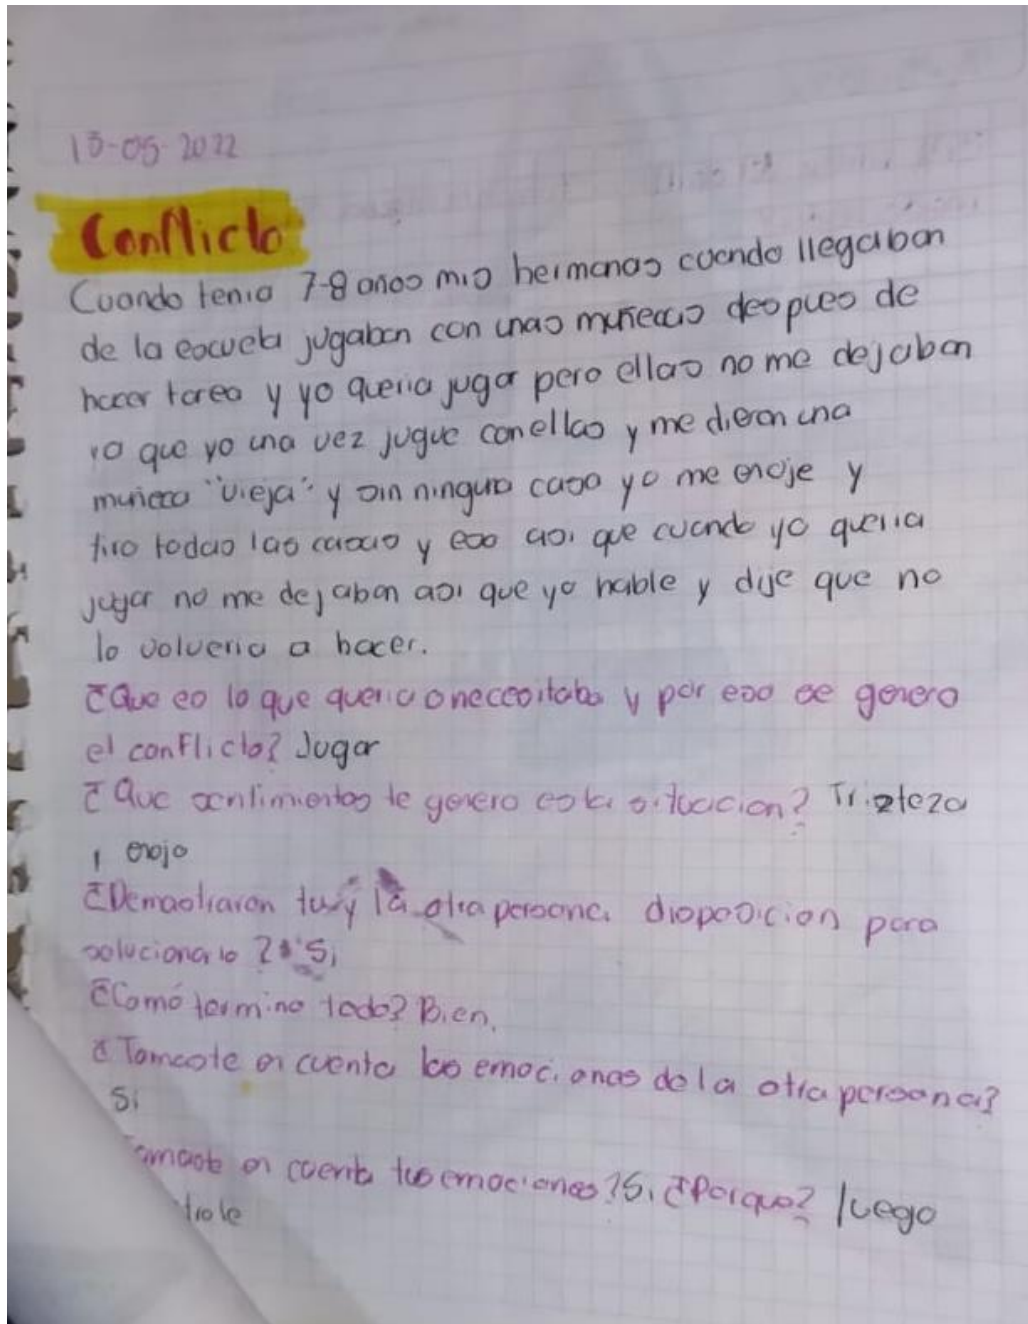 13-05-2022
Conflicto
Cuando tenia 7-8 años mis hermanas cuando llegaban
de la escuela jugaban con unas muñecas despues de
hacer tarea y yo queria jugar pero ellas no me dejaban
ya que yo una vez jugue con ellas y me dieron una
muñeca "vieja" y sin ninguna casa yo me enoje y
tire todas las casas y eso asi que cuando yo queria
jugar no me dejaban asi que yo hable y dije que no
lo volveria a hacer.
¿Que es lo que queria o neccesitaba y por eso se genero
el conflicto? Jugar
¿Que sentimientos te genero esta situacion? Tristeza
y enojo
¿Demostraron tu y la otra persona disposicion para
solucionarlo? Si
¿Como termino todo? Bien.
¿Tomaste en cuenta las emociones de la otra persona?
Si
omaste en cuenta tus emociones? Si ¿Porque? luego
trole